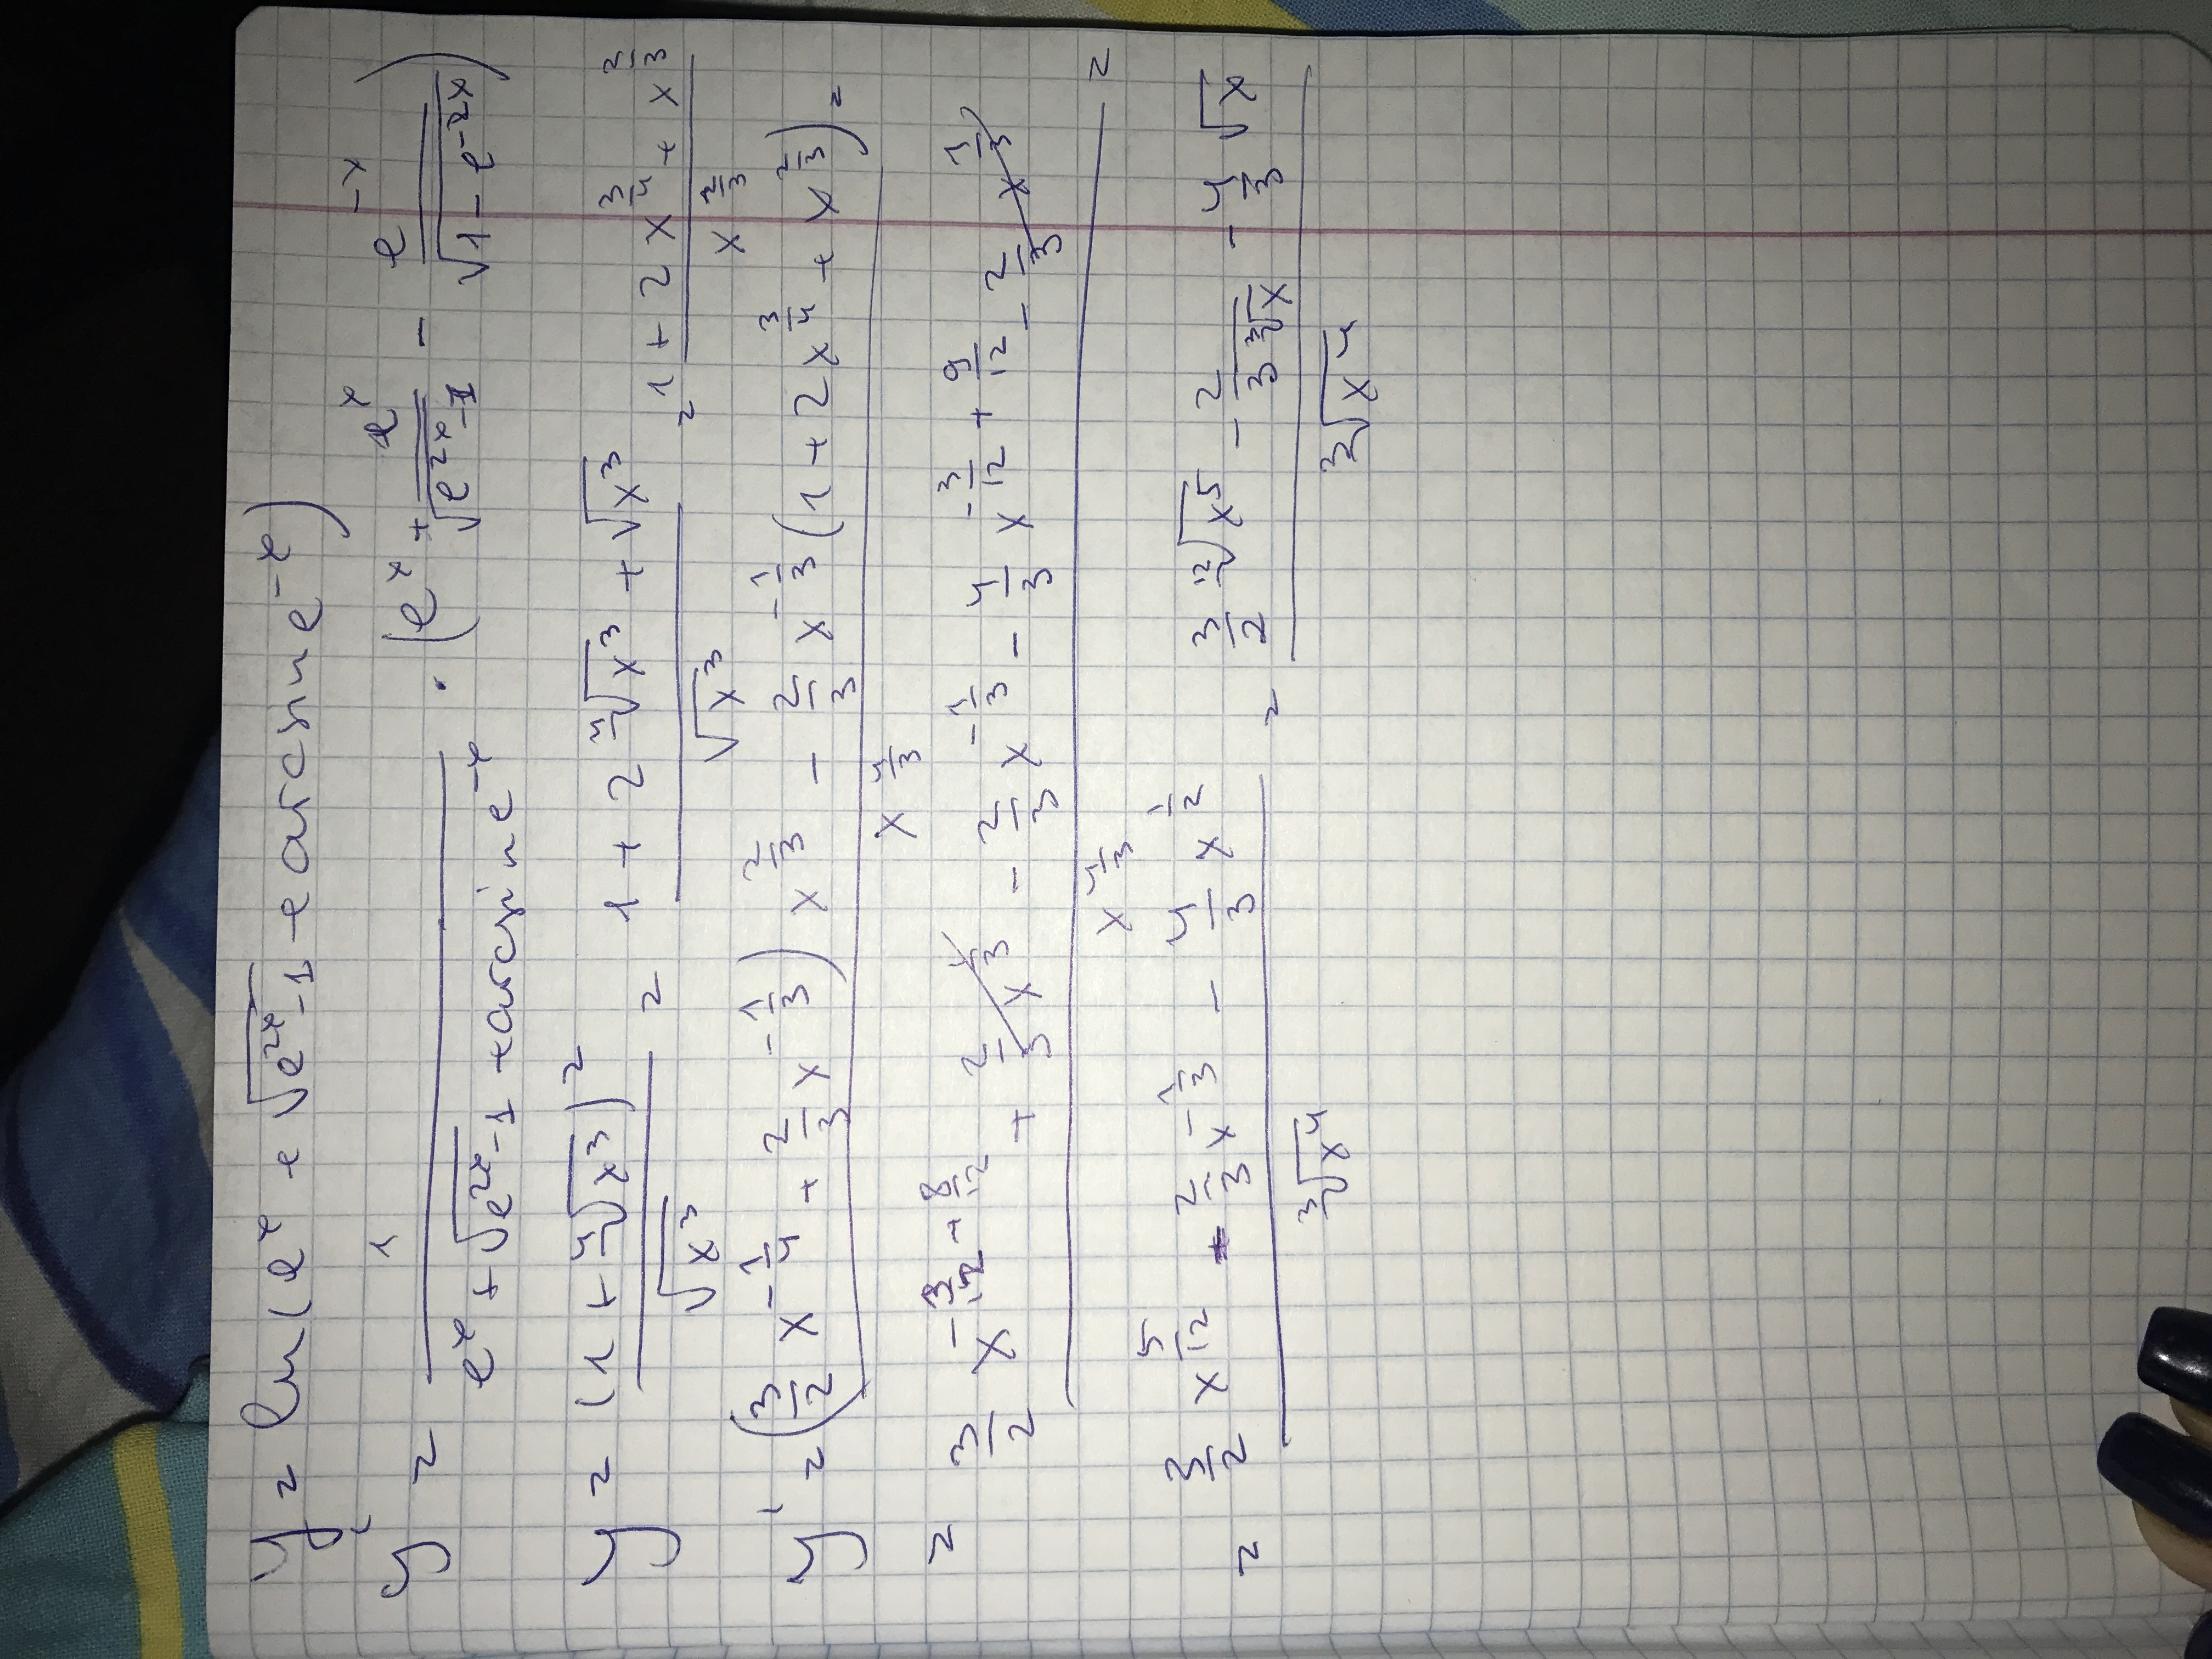 y = ln(e^x + √(e^(2x) - 1) + arcsin e^(-x))
y' = 1/(e^x + √(e^(2x) - 1) + arcsin e^(-x)) · (e^x + e^x/√(e^(2x) - 1) - e^(-x)/√(1 - e^(-2x)))
y = (1 + ⁴√(x³))²/√(x³) = (1 + 2 ⁴√(x³) + √(x³))/√(x³) = (1 + 2x^(3/4) + x^(2/3))/x^(2/3)
y' = ((3/2 x^(-1/4) + 2/3 x^(-1/3)) x^(2/3) - 2/3 x^(-1/3) (1 + 2x^(3/4) + x^(2/3)))/x^(4/3) =
= (3/2 x^(-3/12 + 8/12) + 2/3 x^(1/3) - 2/3 x^(-1/3) - 4/3 x^(-3/12 + 9/12) - 2/3 x^(1/3))/x^(4/3) =
= (3/2 x^(5/12) - 2/3 x^(-1/3) - 4/3 x^(1/2))/³√(x⁴) = (3/2 ¹²√(x⁵) - 2/(3 ³√x) - 4/3 √x)/³√(x⁴)